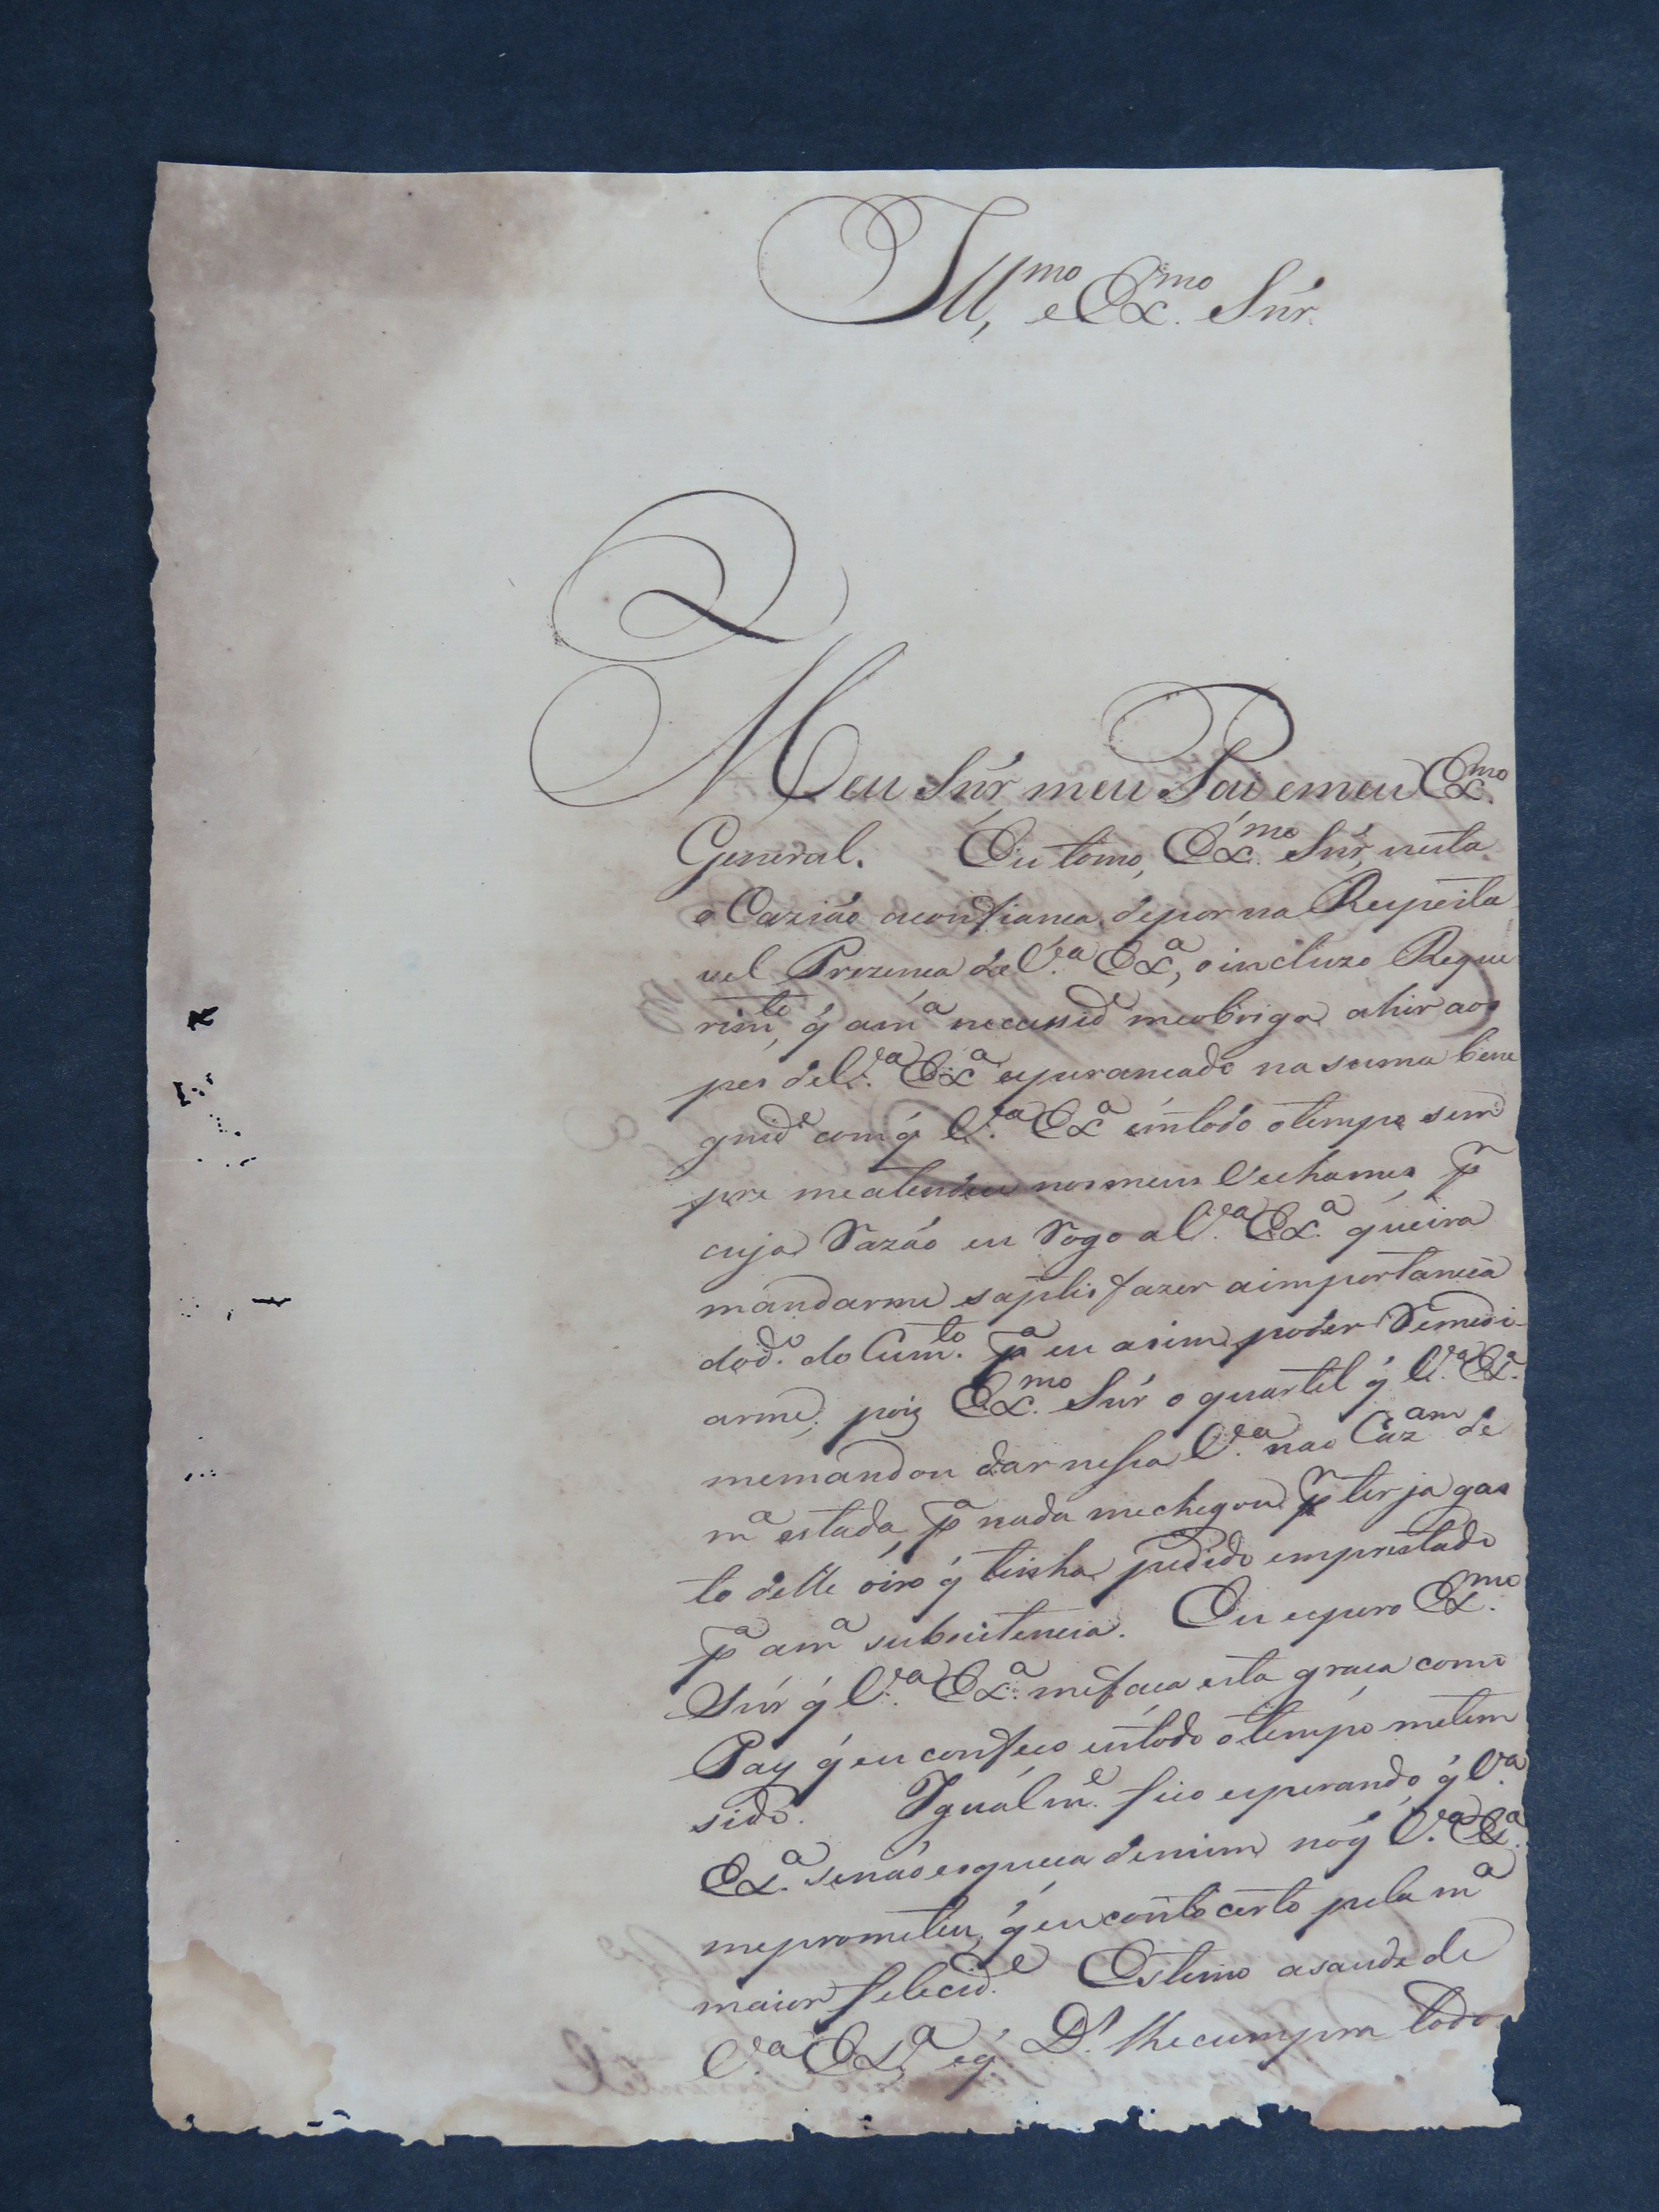 Ill.mo e Ex.mo Snr.
Meu Snr, meu Pai e meu Ex.mo
General. Eu tomo, Ex.mo Snr, nesta
o Cazião a confianca de por na Respeita
vel Prezenca de V.a Ex.a, o incluzo Reque
rim.to, q̃ a m.a necessid.e me obriga a hir aos
pes de V.a Ex.a esperancado na suma bene
gnid.e com q̃ V.a Ex.a em todo o tempo sem
pre me atendeu nos meus Vechames, p.r
cuja Razáo eu Rogo a V.a Ex.a q̃ueira
mandarme saptisfazer a importancia
do d.o do Cum.to p.a eu asim poder Remedi
arme, pois Ex.mo Snr o quartel q̃ V.a Ex.a
me mandou dar nesta V.a na o Caz.am de
m.a estada, p.a nada me chegou p.r ter ja gas
to delle oiro q̃ tinha pedido emprestado
p.a a m.a subsistencia. Eu espero Ex.mo
Snr q̃ V.a Ex.a me faca esta graca como
Pay q̃ eu confeco em todo o tempo me tem
sido. Igualm.e fico esperando, q̃ V.a
Ex.a se náo esqueca de mim no q̃ V.a Ex.a
me prometeu, q̃ eu conto certo pela m.a
maior felecid.e Estimo a saude de
V.a Ex.a, e q̃ D.s lhe cumpra todo